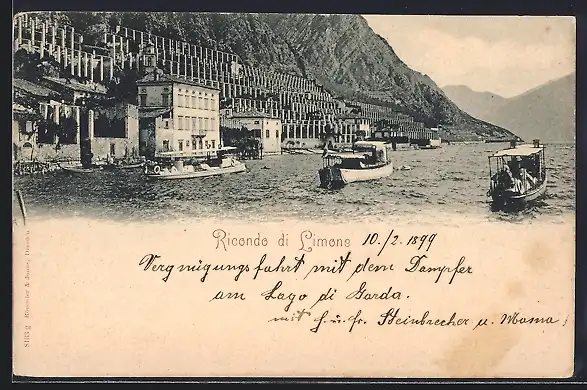 Ricordo di Limone 10./2. 1899
Vergnügungsfahrt mit dem Dampfer
am Lago di Garda.
mit H. u. Fr. Steinbrecher u. Mama!
8133 g Römmler & Jonas, Dresden